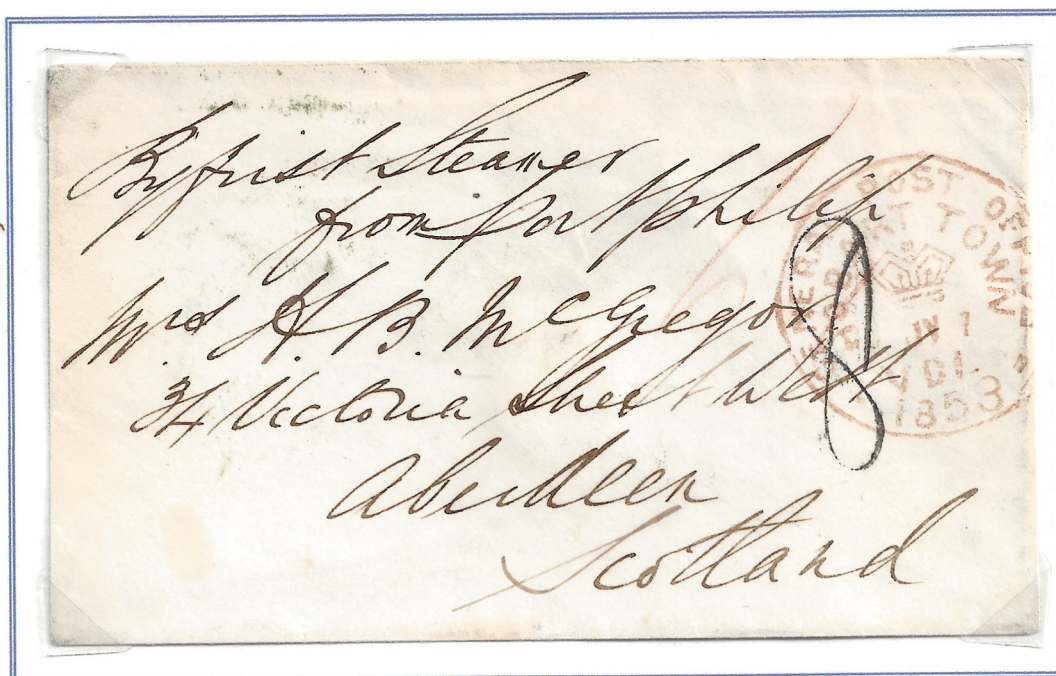 By first Steamer
from Port Philip
Mrs H. B. McGregor
34 Victoria Street West
Aberdeen
Scotland
8
GENERAL POST OFFICE
HOBART TOWN
1853